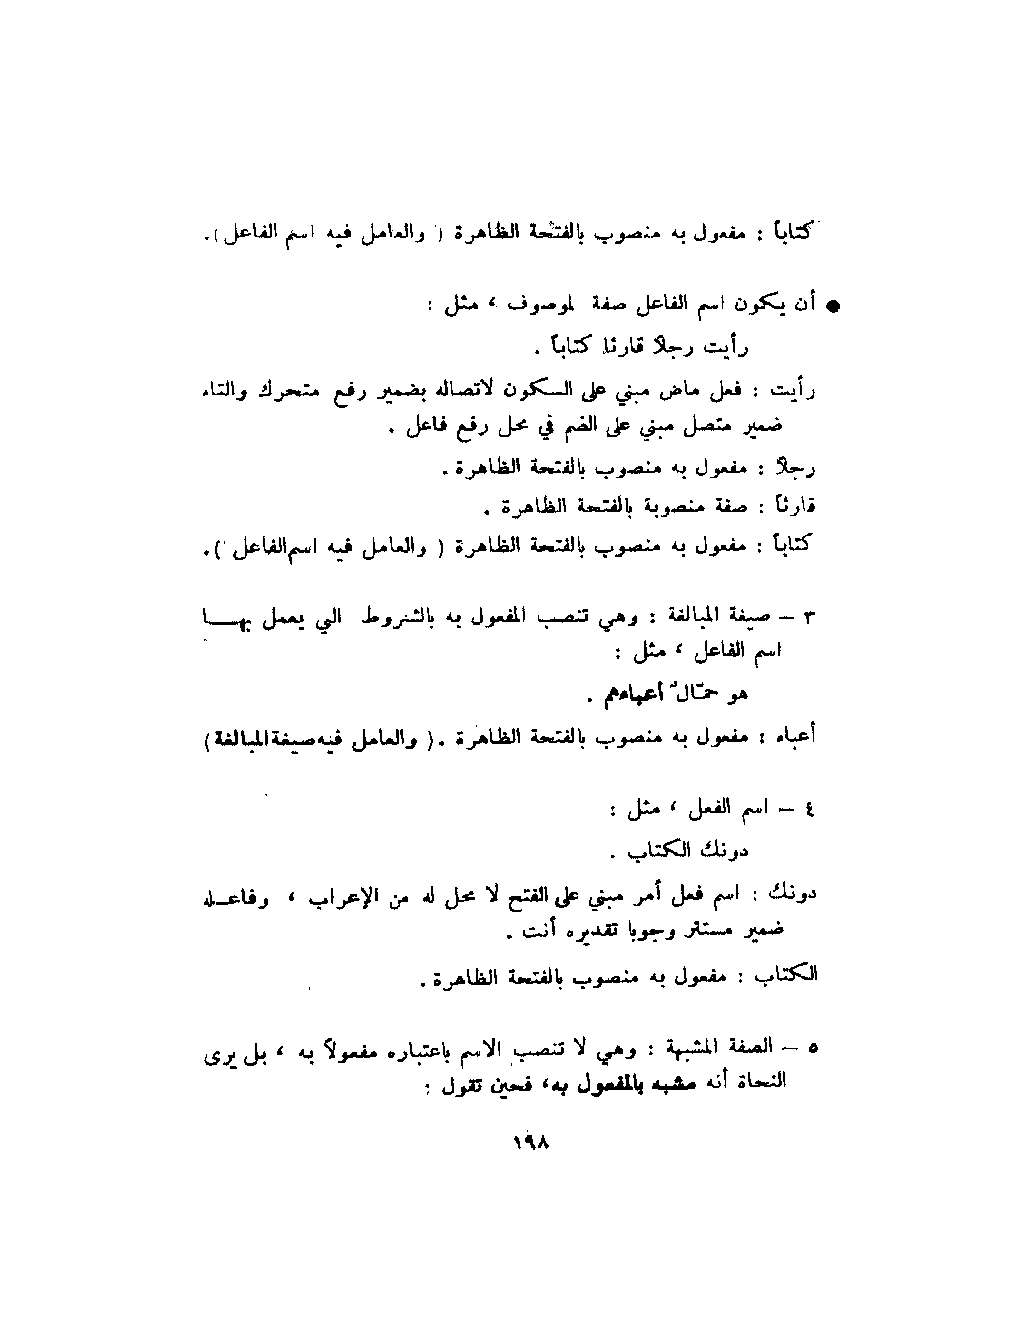 كتاباً : مفعول به منصوب بالفتحة الظاهرة ( والعامل فيه اسم الفاعل ).
● أن يكون اسم الفاعل صفة لموصوف ، مثل :
رأيت رجلاً قارئاً كتاباً .
رأيت : فعل ماض مبني على السكون لاتصاله بضمير رفع متحرك والتاء
ضمير متصل مبني على الضم في محل رفع فاعل .
رجلاً : مفعول به منصوب بالفتحة الظاهرة .
قارئاً : صفة منصوبة بالفتحة الظاهرة .
كتاباً : مفعول به منصوب بالفتحة الظاهرة ( والعامل فيه اسم الفاعل ).
٣ – صيغة المبالغة : وهي تنصب المفعول به بالشروط التي يعمل بهـــا
اسم الفاعل ، مثل :
هو حمّالٌ أعباءهم .
أعباء : مفعول به منصوب بالفتحة الظاهرة .( والعامل فيه صيغة المبالغة )
٤ – اسم الفعل ، مثل :
دونك الكتاب .
دونك : اسم فعل أمر مبني على الفتح لا محل له من الإعراب ، وفاعـله
ضمير مستتر وجوبا تقديره أنت .
الكتاب : مفعول به منصوب بالفتحة الظاهرة .
٥ – الصفة المشبهة : وهي لا تنصب الاسم باعتباره مفعولاً به ، بل يرى
النحاة أنه مشبه بالمفعول به، فحين تقول :
١٩٨